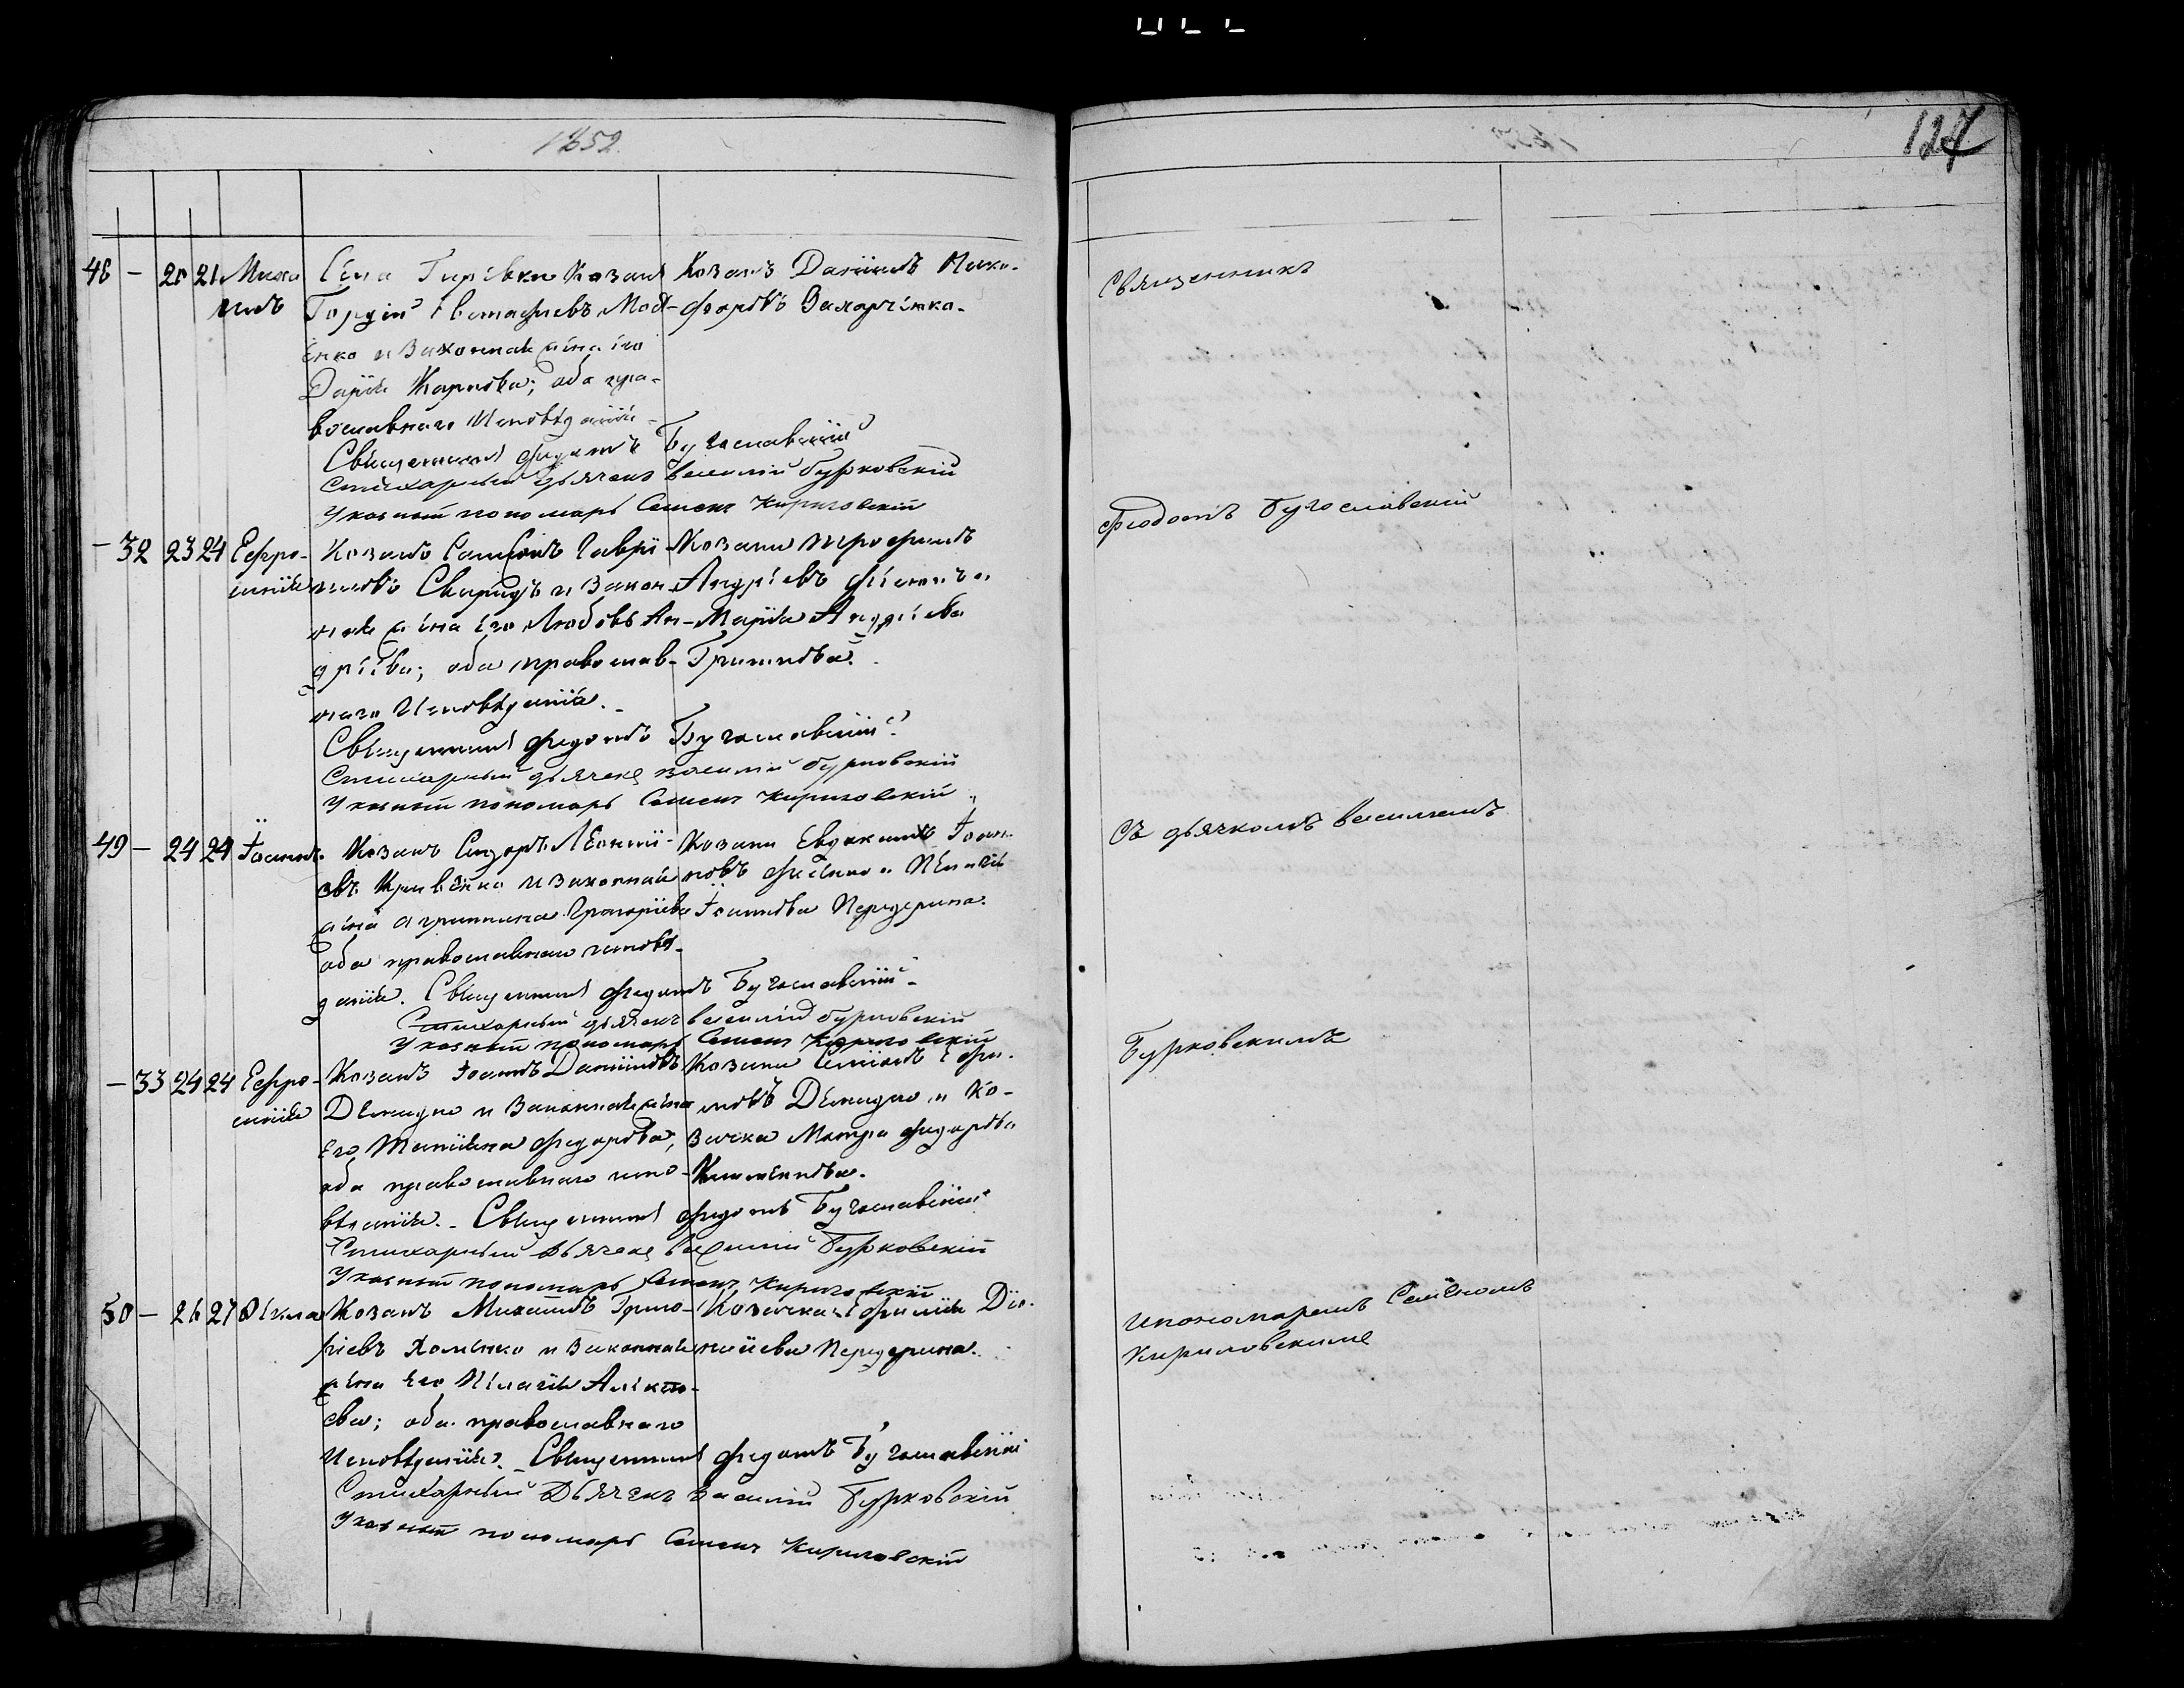 1852.
127
48 – 20 21 Миха
илъ
Села Гиревки Козакъ
Гордій Евстафіевъ
енко и Законная жена его
Дарія Карпова; оба пра-
вославнаго Исповѣданія
Козакъ Даніилъ Ники-
форовъ Захарченко.
Священникъ Федотъ Бугославскій
Стихарный дьячекъ Василій Бурковскій
Указный пономарь Семенъ Кириловскій
– 32 23 24 Евфро-
синія
Козакъ Самсонъ Гаврі-
иловъ Свиридъ и Закон-
ная жена его Любовь Ан-
дріева; оба православ-
наго Исповѣданія.
Козаки Трофимъ
Андріевъ и
Марія Андріева
Священникъ Федотъ Бугославскій
Стихарный дьячекъ Василій Бурковскій
Указный пономарь Семенъ Кириловскій
49 – 24 24 Іоаннъ.
Козакъ Сидоръ Леонті-
евъ Кривенко и Законная
жена Агриппина Григоріева
оба православнаго исповѣ-
данія.
Козаки Евдокимъ Іоан-
новъ и Пелагія
Іоаннова Передерина.
Священникъ Федотъ Бугославскій
Стихарный дьячекъ Василій Бурковскій
Указный пономарь Семенъ Кириловскій
– 33 24 24 Евфро-
синія
Козакъ Іоаннъ Даніиловъ
Демидко и Законная жена
Его Татіяна Федорова,
оба православнаго испо-
вѣданія.
Козаки Симеонъ Ефи-
мовъ Демидко и Ко-
зачка Мотря Федорова
Священникъ Федотъ Бугославскій
Стихарный Дьячекъ Василій Бурковскій
Указный пономарь Семенъ Кириловскій
50 – 26 27 Фекла
Козакъ Михаилъ Григо-
ріевъ Хоменко и Законная
жена Его Пелагія Алексі-
ева; оба православнаго
Исповѣданія.
Козачка Ефимія Діо-
нисіева Передерина.
Священникъ Федотъ Бугославскій
Стихарный Дьячекъ Василій Бурковскій
Указный пономарь Семенъ Кириловскій
Священникъ
Феодотъ Бугославскій
Съ дьячкомъ Василіемъ
Бурковскимъ
и пономаремъ Семеномъ
Кириловскимъ